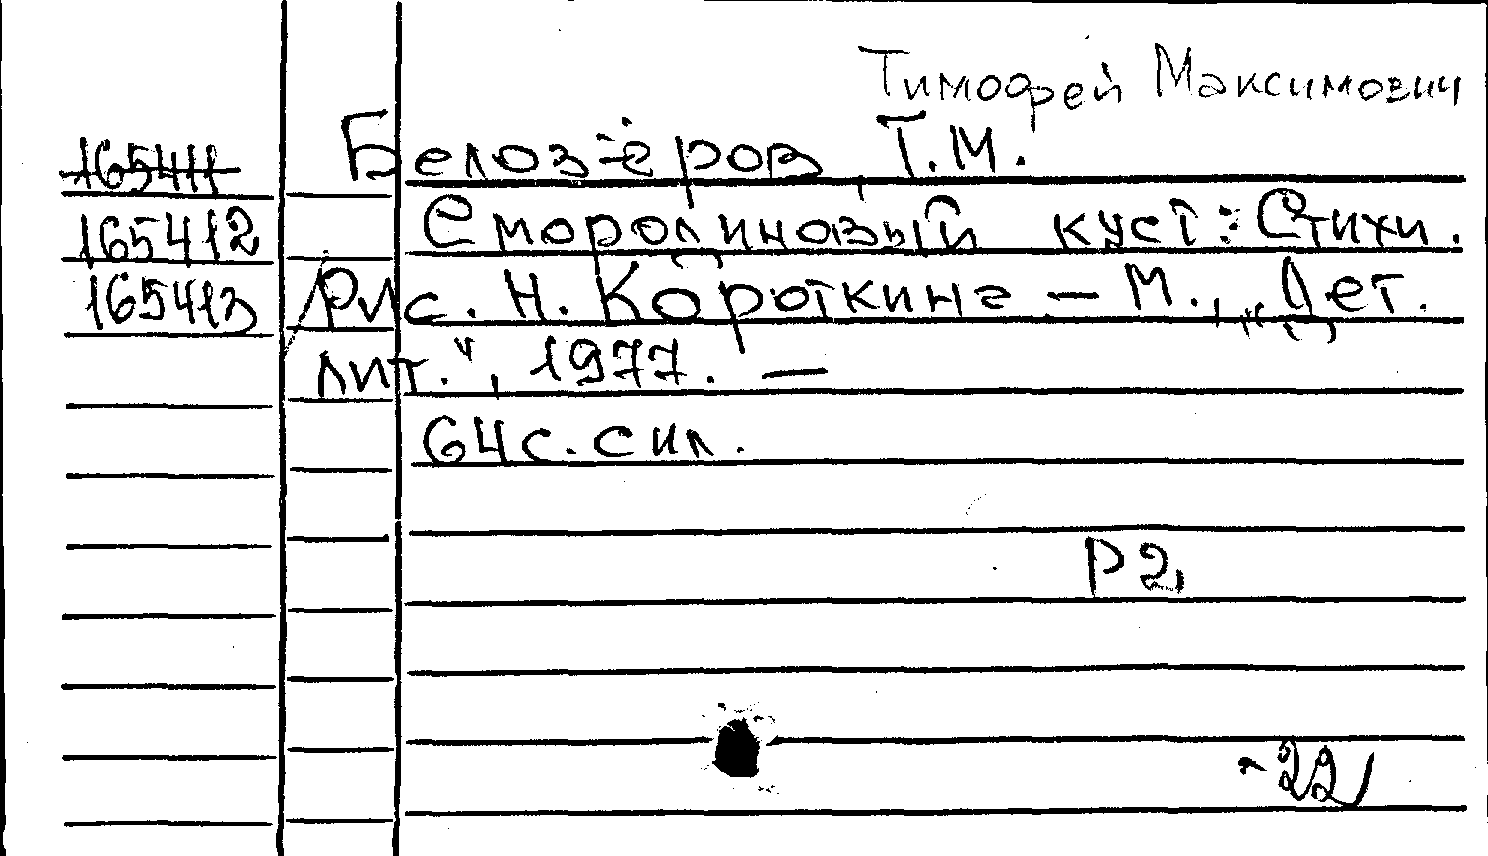 Тимофей Максимович
165411 Белозёров, Т.М.
165412 Смородиновый куст: Стихи.
165413 / Рис. Н. Короткина — М., „Дет.
лит.", 1977. —
64 с. с ил.
Р2
-22